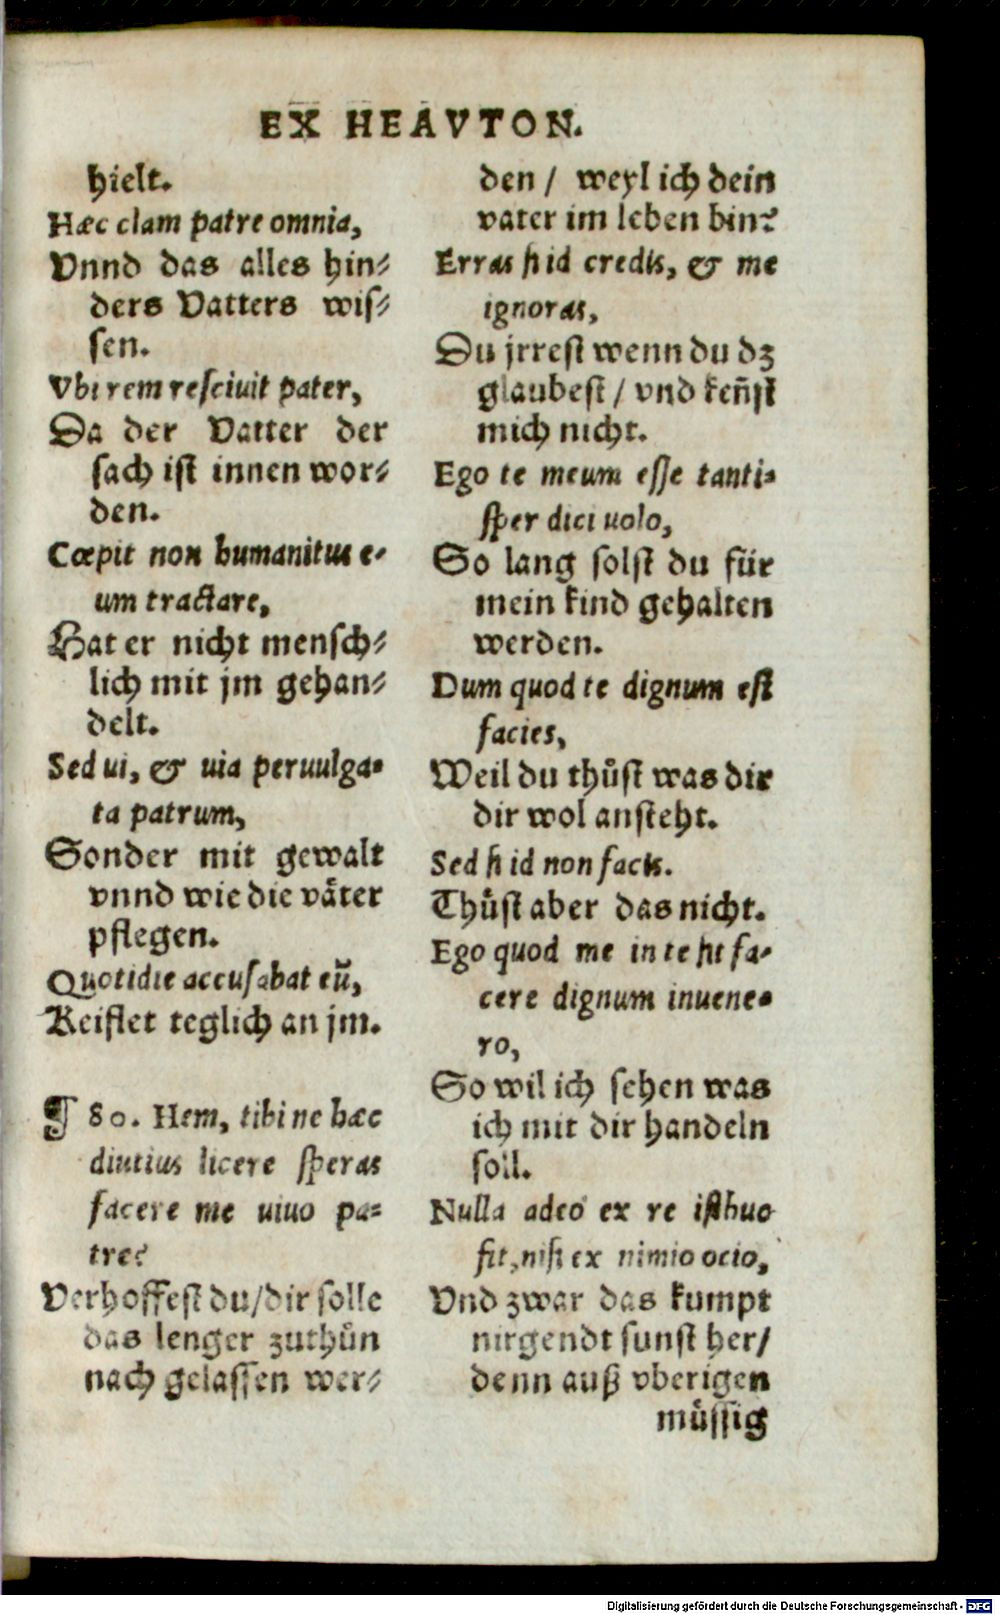 EX HEAVTON.
hielt.
Hæc clam patre omnia,
Vnnd das alles hin⸗
ders Vatters wis⸗
sen.
Vbi rem resciuit pater,
Da der Vatter der
sach ist innen wor⸗
den.
Cœpit non humanitus e⸗
um tractare,
Hat er nicht mensch⸗
lich mit jm gehan⸗
delt.
Sed ui, & uia peruulga⸗
ta patrum,
Sonder mit gewalt
vnnd wie die väter
pflegen.
Quotidie accusabat eũ,
Keiflet teglich an jm.
¶ 80. Hem, tibi ne hæc
diutius licere speras
facere me uiuo pa⸗
tre?
Verhoffest du/dir solle
das lenger zuthůn
nach gelassen wer⸗
den / weyl ich dein
vater im leben bin?
Erras si id credis, & me
ignoras,
Du jrrest wenn du dz
glaubest / vnd keñst
mich nicht.
Ego te meum esse tanti⸗
sper dici uolo,
So lang solst du für
mein kind gehalten
werden.
Dum quod te dignum est
facies,
Weil du thůst was dir
dir wol ansteht.
Sed si id non facis.
Thůst aber das nicht.
Ego quod me in te sit fa⸗
cere dignum inuene⸗
ro,
So wil ich sehen was
ich mit dir handeln
soll.
Nulla adeò ex re isthuc
fit, nisi ex nimio ocio,
Vnd zwar das kumpt
nirgendt sunst her/
denn auß vberigen
můssig
Digitalisierung gefördert durch die Deutsche Forschungsgemeinschaft - DFG